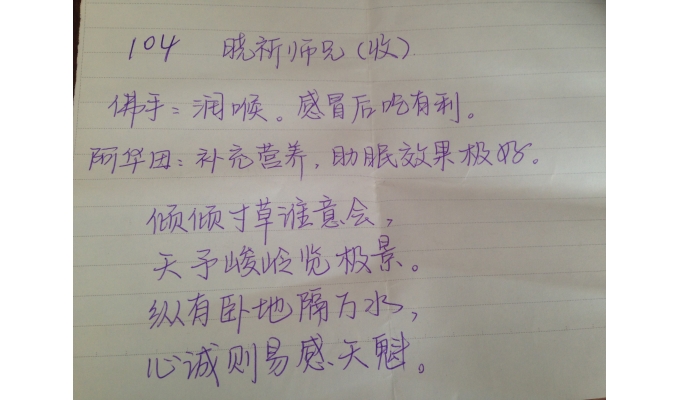 104 晓祈师兄(收)
佛手:润喉。感冒后吃有利。
阿华田:补充营养,助眠效果极好。
倾倾寸草谁意会,
天予峻岭览极景。
纵有卧地隔万水,
心诚则易感天魁。